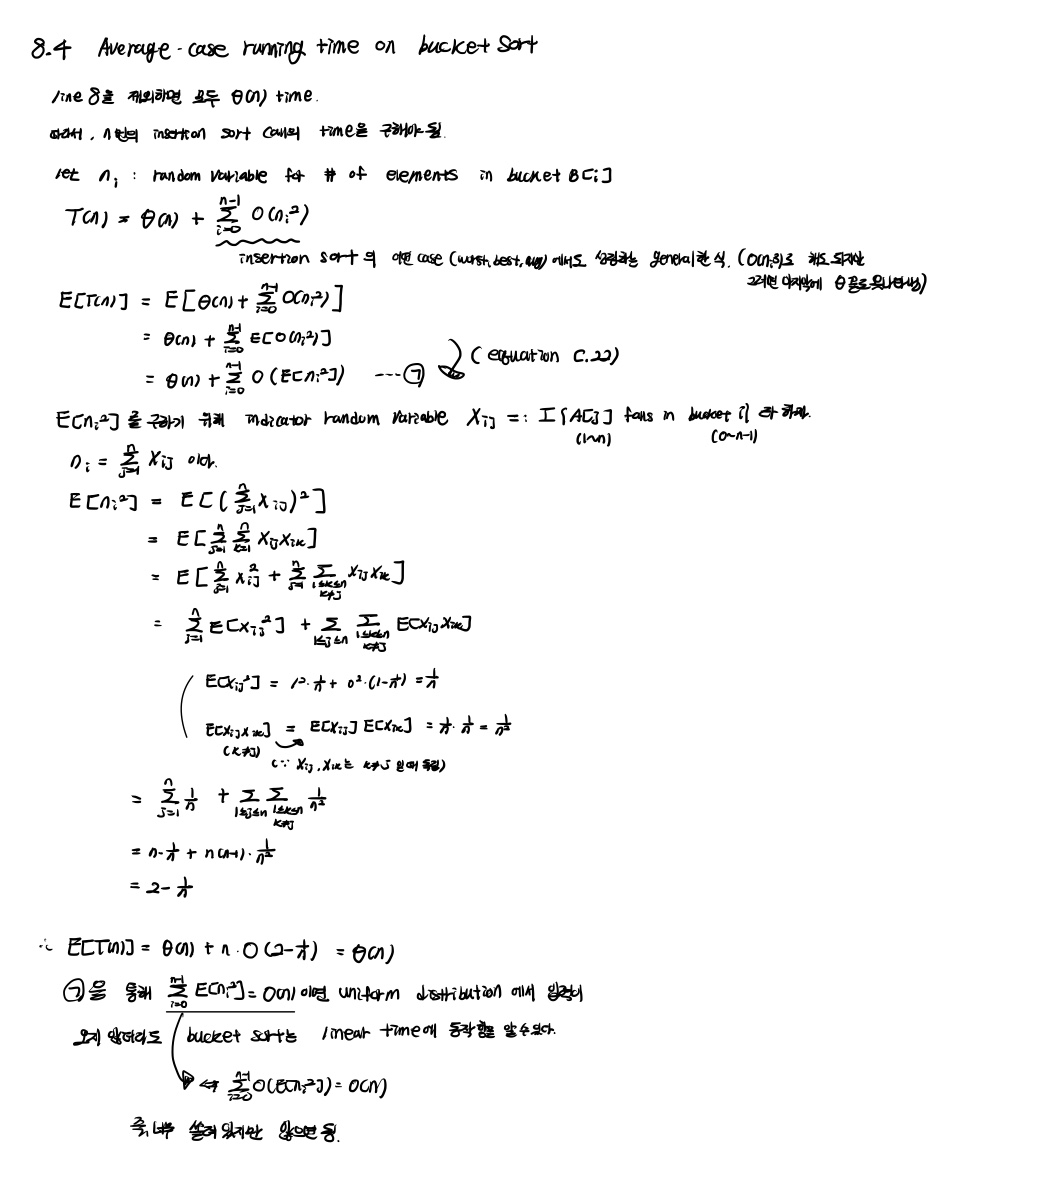 8.4 Average-case running time on bucket sort
line 8을 제외하면 모두 θ(n) time.
따라서, n번의 insertion sort call의 time을 구해야 됨.
let nᵢ : random variable for # of elements in bucket B[i]
T(n) = θ(n) + Σ_{i=0}^{n-1} O(nᵢ²)
insertion sort의 어떤 case (worst, best, avg) 에서도 성립하는 general한 식. (O(nᵢ²)로 해도 되지만
그러면 마지막에 θ 꼴로 못나타냄)
E[T(n)] = E[θ(n) + Σ_{i=0}^{n-1} O(nᵢ²)]
= θ(n) + Σ_{i=0}^{n-1} E[O(nᵢ²)]
= θ(n) + Σ_{i=0}^{n-1} O(E[nᵢ²]) ---㉠ (equation C.22)
E[nᵢ²]를 구하기 위해 indicator random variable Xᵢⱼ =: I{A[j] falls in bucket i} 라 하자.
(1~n) (0~n-1)
nᵢ = Σ_{j=1}^{n} Xᵢⱼ 이다.
E[nᵢ²] = E[(Σ_{j=1}^{n} Xᵢⱼ)²]
= E[Σ_{j=1}^{n} Σ_{k=1}^{n} XᵢⱼXᵢₖ]
= E[Σ_{j=1}^{n} Xᵢⱼ² + Σ_{j=1}^{n} Σ_{1≤k≤n, k≠j} XᵢⱼXᵢₖ]
= Σ_{j=1}^{n} E[Xᵢⱼ²] + Σ_{1≤j≤n} Σ_{1≤k≤n, k≠j} E[XᵢⱼXᵢₖ]
E[Xᵢⱼ²] = 1²·1/n + 0²·(1-1/n) = 1/n
E[XᵢⱼXᵢₖ] = E[Xᵢⱼ]E[Xᵢₖ] = 1/n · 1/n = 1/n²
(k≠j)
(∵ Xᵢⱼ, Xᵢₖ는 k≠j 일 때 독립)
= Σ_{j=1}^{n} 1/n + Σ_{1≤j≤n} Σ_{1≤k≤n, k≠j} 1/n²
= n·1/n + n(n-1)·1/n²
= 2 - 1/n
∴ E[T(n)] = θ(n) + n·O(2-1/n) = θ(n)
㉠을 통해 Σ_{i=0}^{n-1} E[nᵢ²] = O(n) 이면 uniform distribution 에서 입력이
오지 않더라도 bucket sort는 linear time에 동작함을 알 수 있다.
⇔ Σ_{i=0}^{n-1} O(E[nᵢ²]) = O(n)
즉, 너무 쏠려 있지만 않으면 됨.